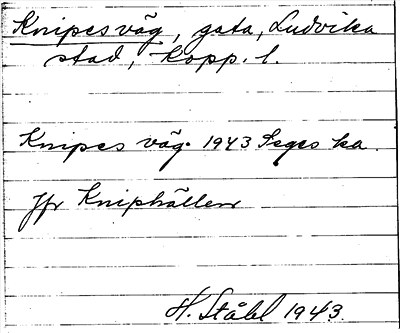 Knipes väg, gata, Ludvika
stad, Kopp. l.
Knipes väg. 1943 Seges ka.
Jfr Kniphällen
H. Ståhl 1943.